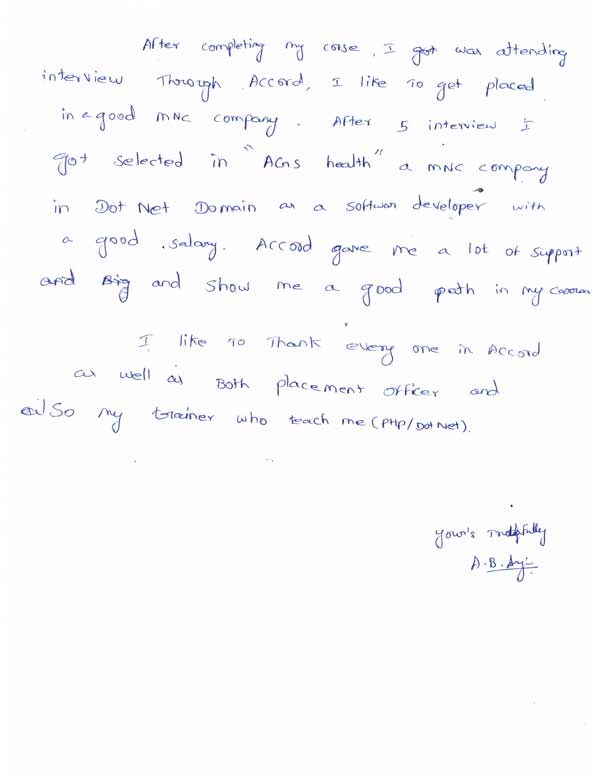 After completing my corse, I got was attending
interview Through Accord, I like To get placed
in a good MNC company. After 5 interview I
got selected in "AGS health" a MNC company
in Dot Net Domain as a softwar developer with
a good salary. Accord gave me a lot of support
and Big and show me a good path in my
I like To Thank every one in Accord
as well as Both placement officer and
also my trainer who teach me (PHP/Dot Net).
Your's
A.B.